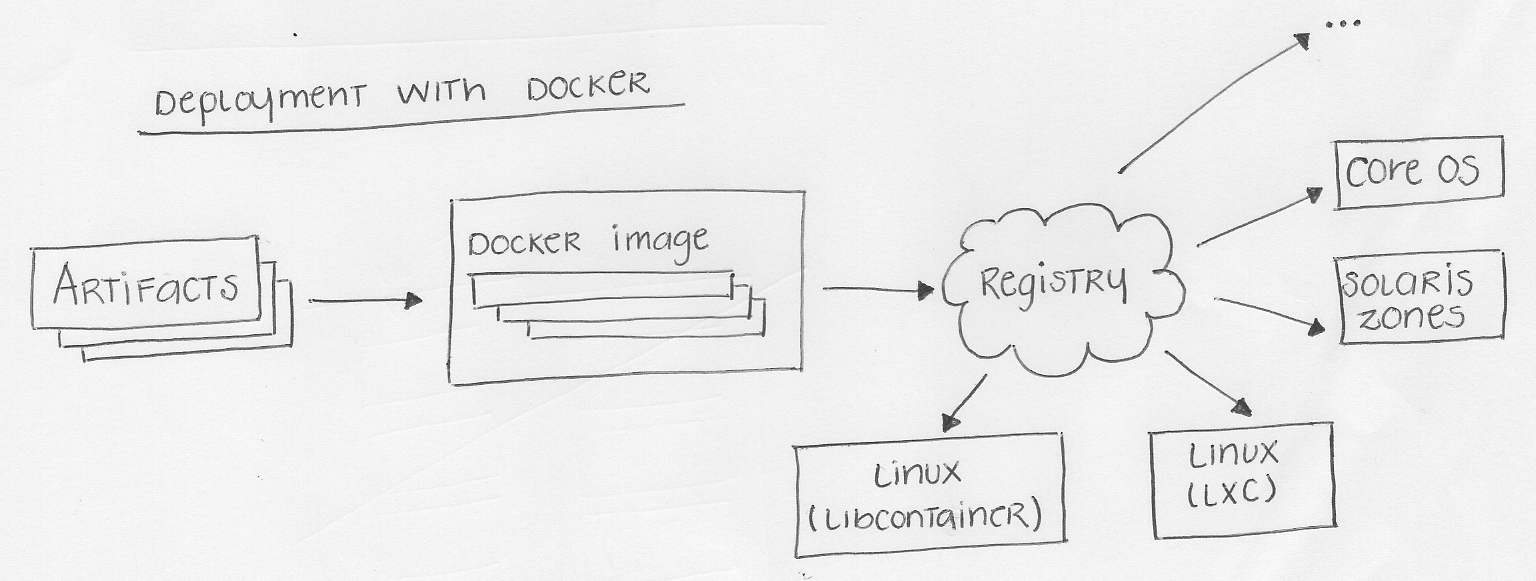 Deployment with Docker
...
Core OS
Artifacts
Docker image
Registry
Solaris
Zones
Linux
(Libcontainer)
Linux
(LXC)